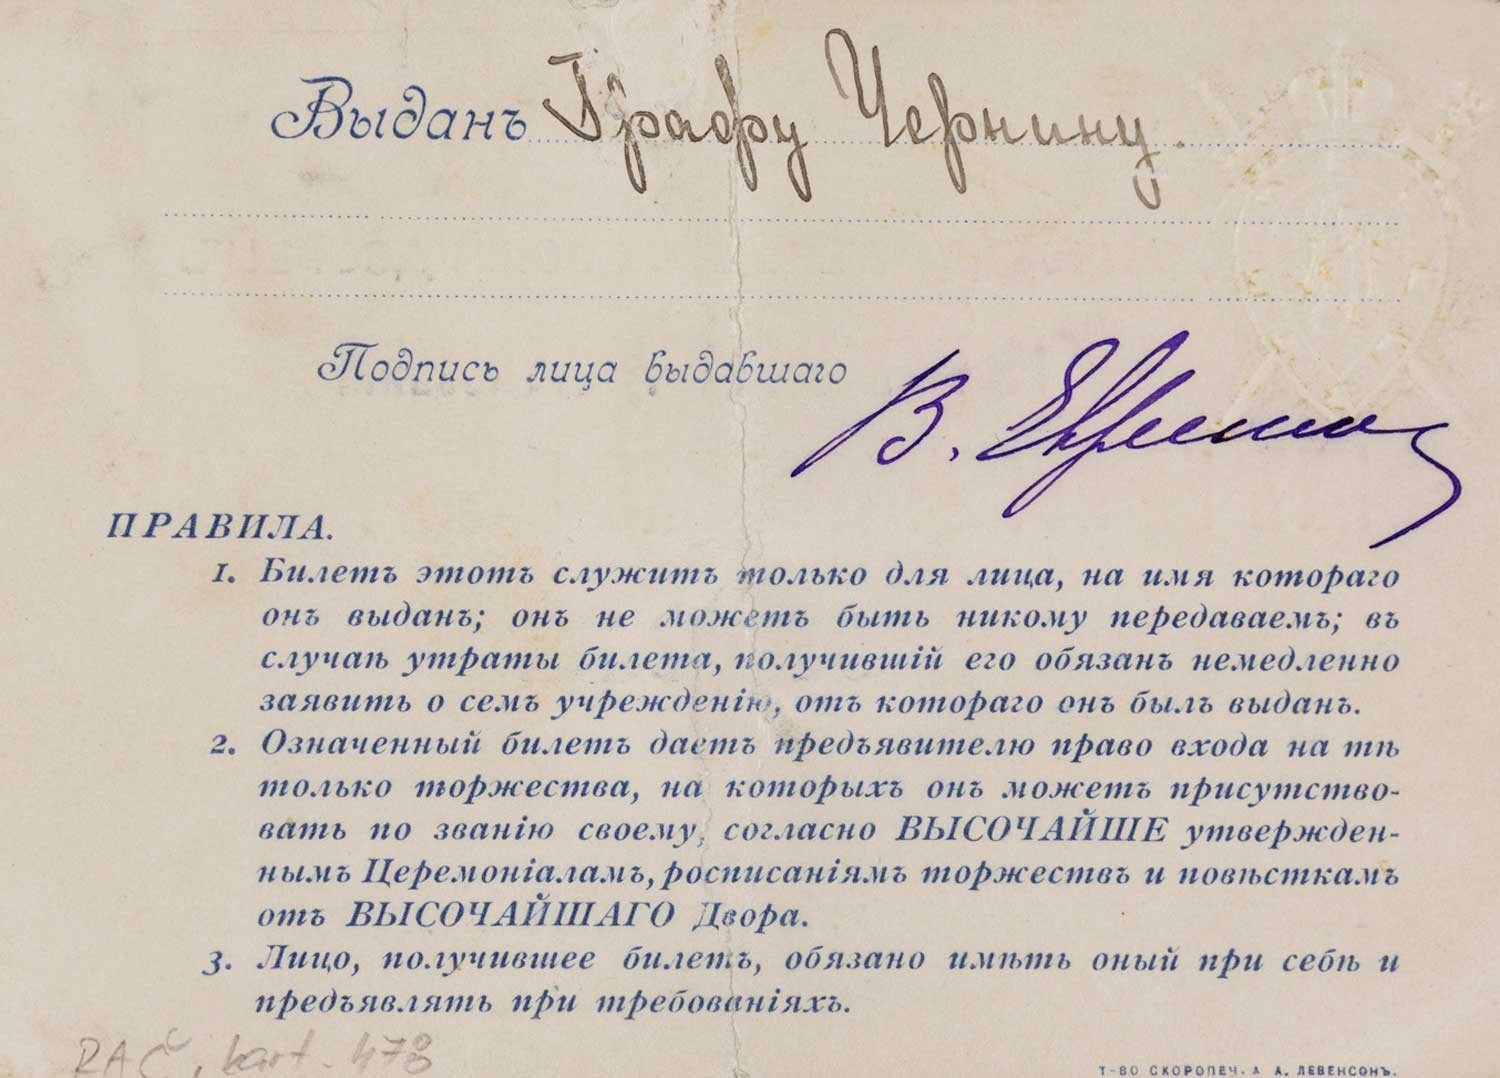 Выданъ Графу Чернину.
Подпись лица выдавшаго
ПРАВИЛА.
1. Билетъ этотъ служитъ только для лица, на имя котораго
онъ выданъ; онъ не можетъ быть никому передаваемъ; въ
случаѣ утраты билета, получившій его обязанъ немедленно
заявить о семъ учрежденію, отъ котораго онъ былъ выданъ.
2. Означенный билетъ даетъ предъявителю право входа на тѣ
только торжества, на которыхъ онъ можетъ присутство-
вать по званію своему, согласно ВЫСОЧАЙШЕ утвержден-
нымъ Церемоніаламъ, росписаніямъ торжествъ и повѣсткамъ
отъ ВЫСОЧАЙШАГО Двора.
3. Лицо, получившее билетъ, обязано имѣть оный при себѣ и
предъявлять при требованіяхъ.
RAČ, kart. 478
Т-ВО СКОРОПЕЧ. А. А. ЛЕВЕНСОНЪ.